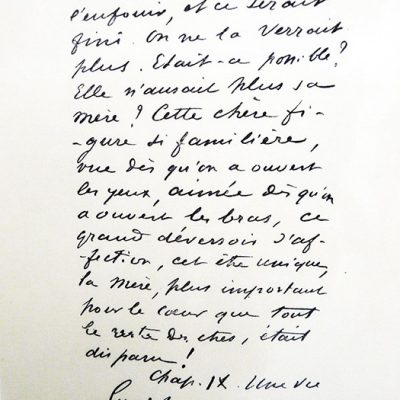 l'enfouir, et ce serait
fini. On ne la verrait
plus. Etait-ce possible?
Elle n'aurait plus sa
mère? Cette chère fi-
-gure si familière,
vue dès qu'on a ouvert
les yeux, aimée dès qu'on
a ouvert les bras, ce
grand déversoir d'af-
-fection, cet être unique,
la mère, plus important
pour le cœur que tout
le reste des êtres, était
disparu!
Chap. IX. Une vie